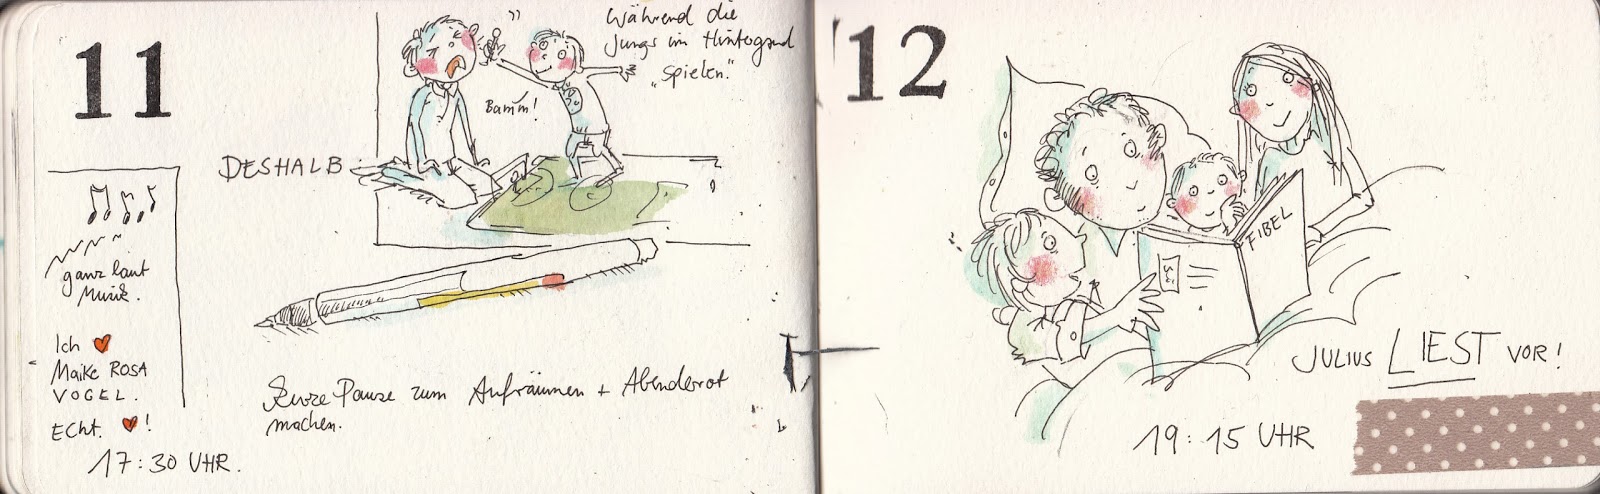 11
"
Während die
Jungs im Hintergrund
„spielen."
Bamm!
DESHALB:
ganz laut
Musik.
Ich ♥
Maike ROSA
VOGEL.
Echt. ♥!
Kurze Pause zum Aufräumen + Abendbrot
machen.
17:30 UHR.
12
FIBEL
JULIUS LIEST VOR!
19:15 UHR